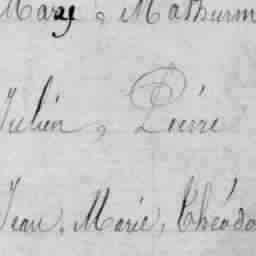 Mary, Mathurin
Julien, Pierre
Jean, Marie, Théodo